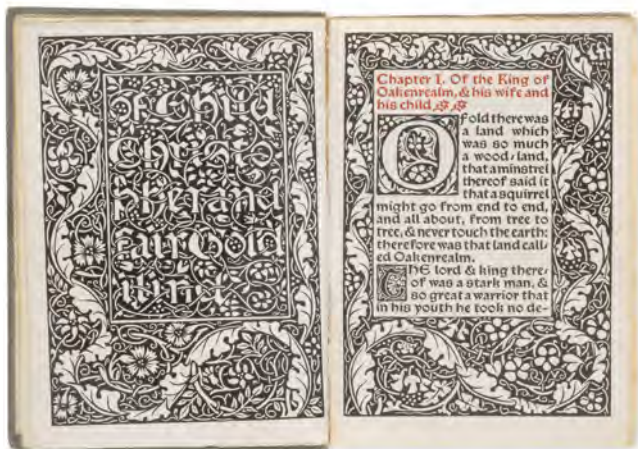 Of Child
Christo
pher and
Fair Gold
ilind
Chapter I. Of the King of
Oakenrealm, & his wife and
his child
Of old there was
a land which
was so much
a wood-land,
that a minstrel
thereof said it
that a squirrel
might go from end to end,
and all about, from tree to
tree, & never touch the earth:
therefore was that land call-
ed Oakenrealm.
The lord & king there-
of was a stark man, &
so great a warrior that
in his youth he took no de-